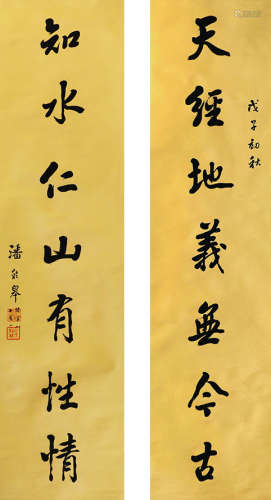 天經地義無今古
戊子初秋
知水仁山有性情
潘齡皋